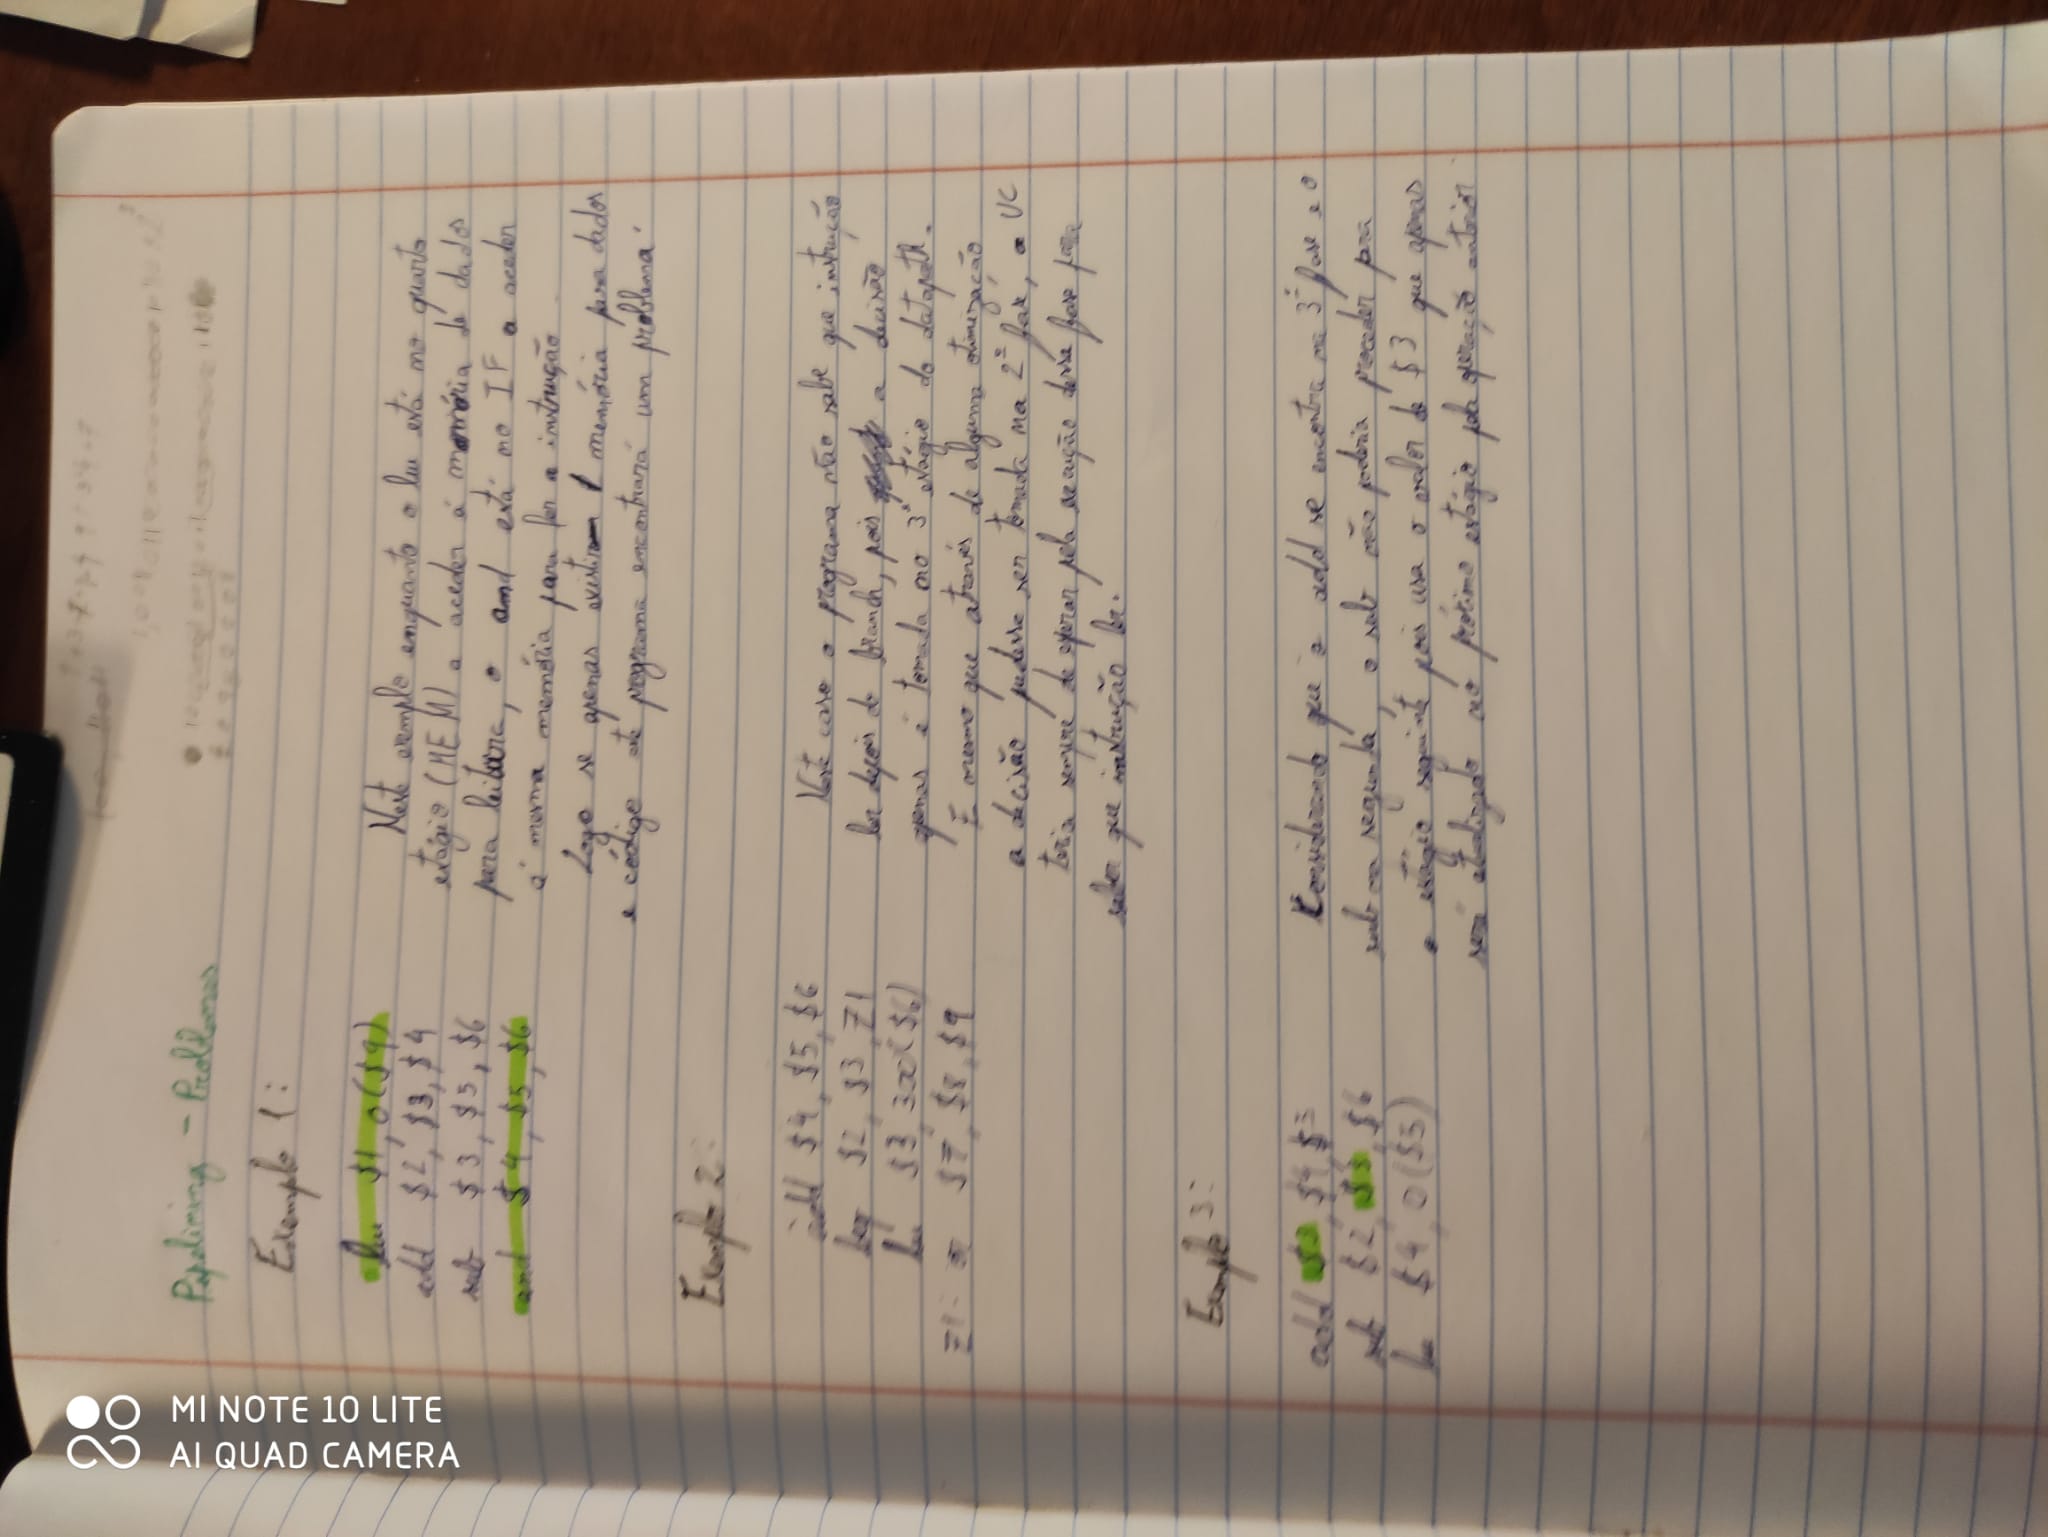 Pipelining - Problemas
Exemplo 1:
lw $1, 0($9)
add $2, $3, $4
sub $3, $5, $6
and $4, $5, $6
Neste exemplo enquanto o lw está no quarto
estágio (MEM) a aceder á memória de dados
para leitura, o and está no IF a aceder
á mesma memória para ler a instrução
Logo se apenas existir 1 memória para dados
e código este programa encontrará um problema.
Exemplo 2:
add $4, $5, $6
beq $2, $3, Z1
lw $3, 300($6)
Z1: or $7, $8, $9
Neste caso o programa não sabe que instrução
ler depois do branch, pois a decisão
apenas é tomada no 3º estágio do datapath.
E mesmo que através de alguma otimização
a decisão pudesse ser tomada na 2ª fase, a UC
teria sempre de esperar pela execução dessa fase para
saber que instrução ler.
Exemplo 3:
add $3, $4, $3
sub $2, $3, $6
lw $4, 0($5)
Considerando que o add se encontra na 3ª fase e o
sub na segunda, o sub não poderia proceder para
o estágio seguinte pois usa o valor de $3 que apenas
será atualizado no próximo estágio pela operação anterior
MI NOTE 10 LITE
AI QUAD CAMERA